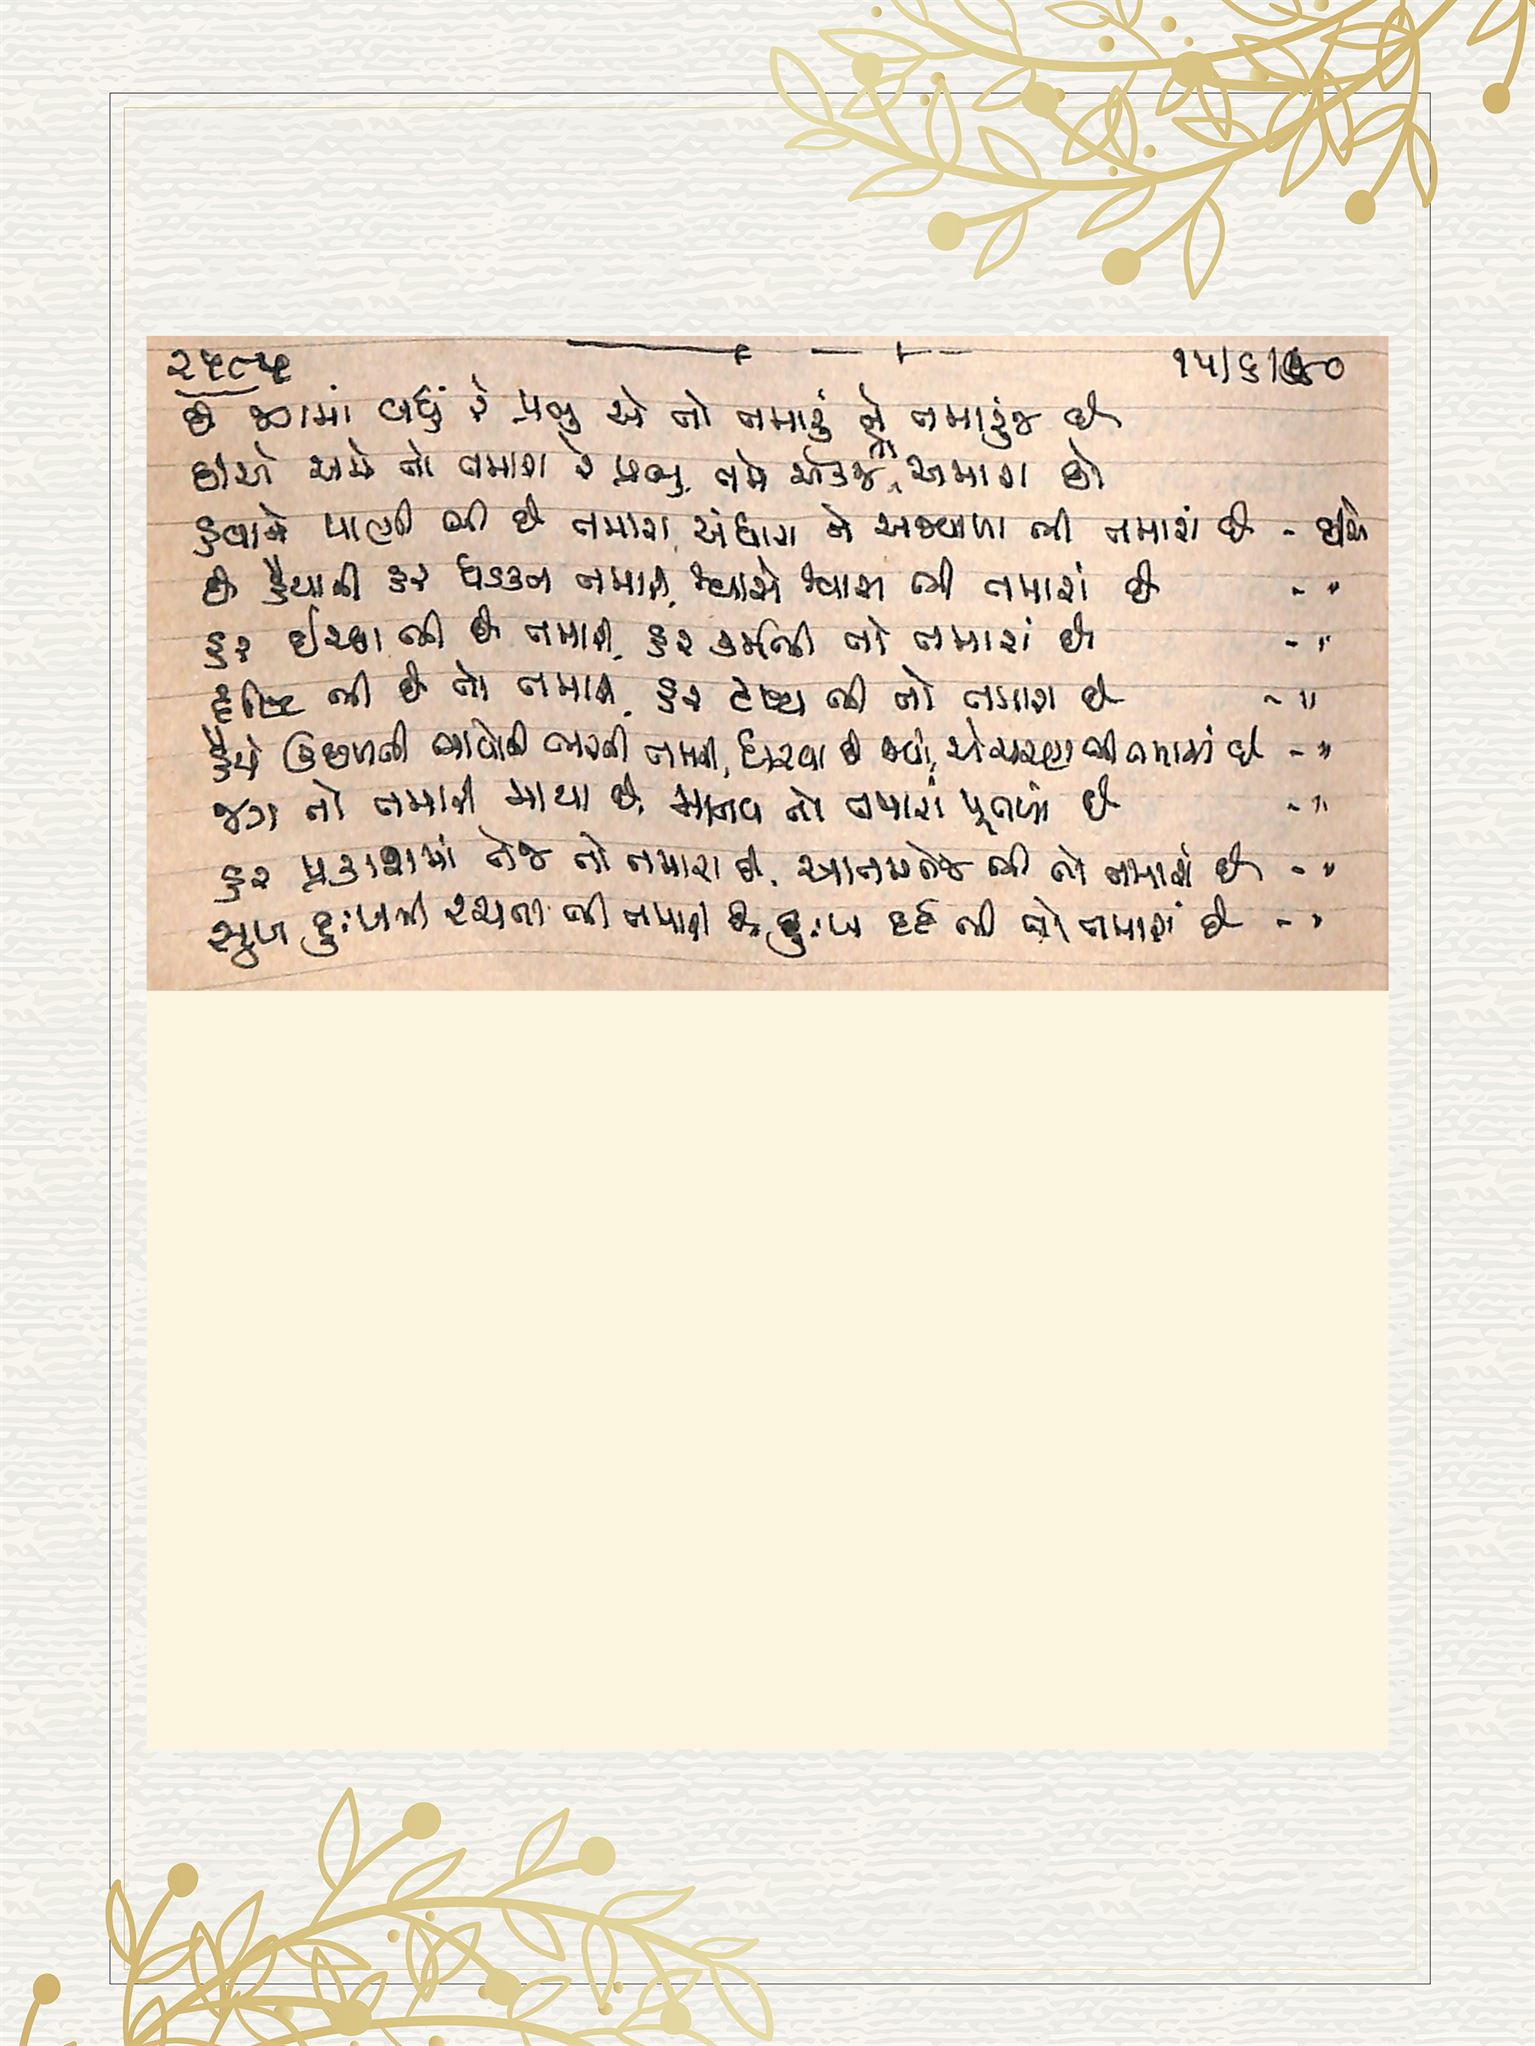 ૨૫૯૫ ૧૫/૬/૯૦
છે જગમાં બધું રે પ્રભુ એ તો તમારું ને તમારુંજ છે
છીએ અમે તો તમારા રે પ્રભુ, તમે એકજ તો અમારા છો
હવાને પાણી બી છે તમારા, અંધારા ને અજવાળા બી તમારાં છે - છીએ
છે હૈયાની હર ધડકન તમારી, શ્વાસે શ્વાસ બી તમારાં છે - "
હર ઈચ્છા બી છે તમારી, હર કર્મબી તો તમારાં છે - "
દૃષ્ટિ બી છે તો તમારી, હર દૃશ્ય બી તો તમારા છે - "
હૈયે ઊછળતી ભાવોની ભરતી તમારી, ધરવા છે જ્યાં, એ ચરણ બી તમારાં છે - "
જગ તો તમારી માયા છે, માનવ તો તમારાં પૂતળાં છે - "
હર પ્રકાશમાં તેજ તો તમારા છે, આતમતેજ બી તો તમારાં છે - "
સુખ દુઃખની રચના બી તમારી છે, દુઃખ દર્દ બી તો તમારાં છે - "